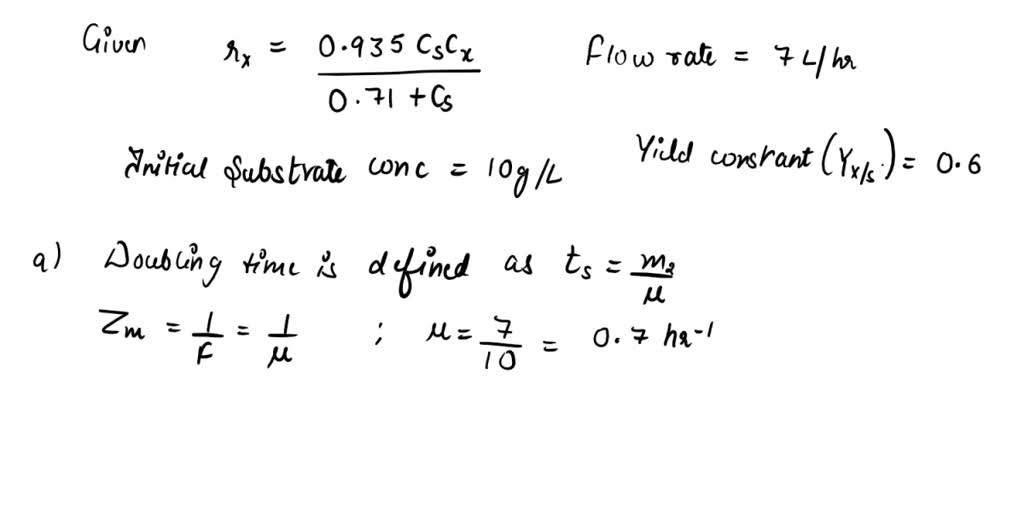 Given r_x = 0.935 CsCx / 0.71 + Cs Flow rate = 7 L/hr
Initial Substrate conc = 10g/L Yield constant (Y_x/s) = 0.6
a) Doubling time is defined as t_s = m2 / μ
Zm = 1/F = 1/μ ; μ = 7/10 = 0.7 hr^-1